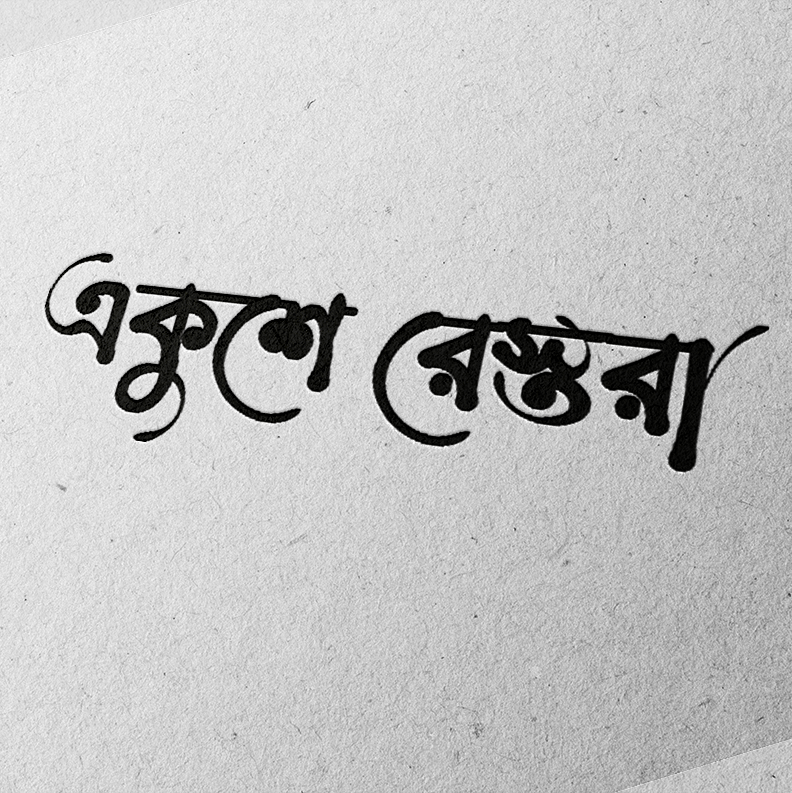 একুশে রেস্তরা